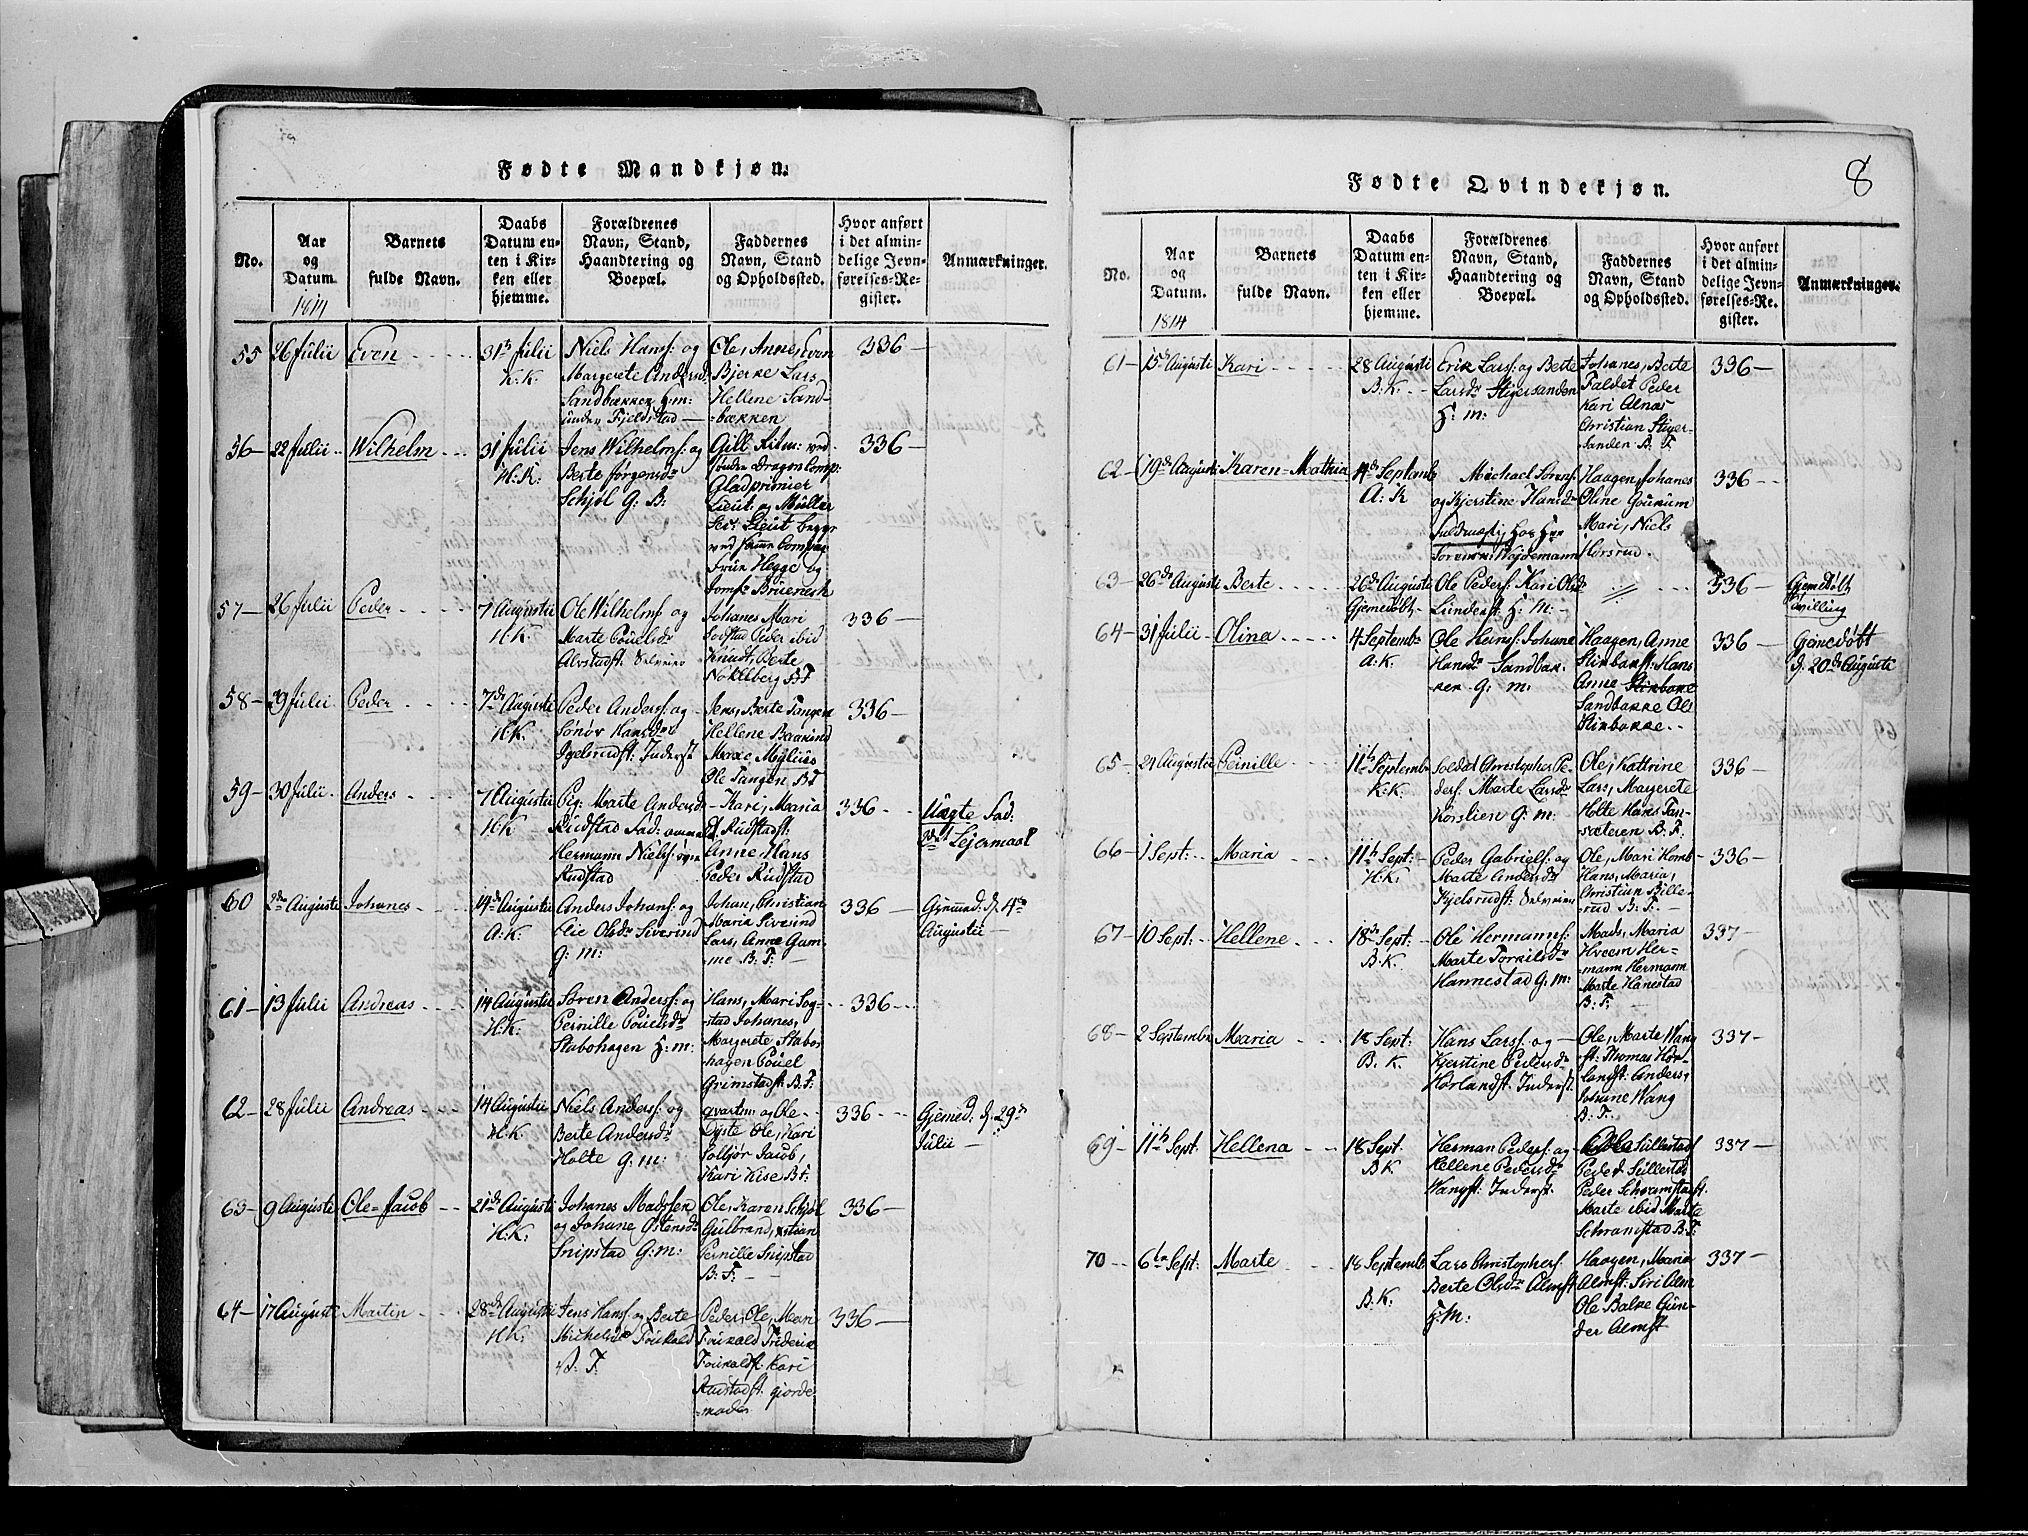 Fødte Mandkjøn.
No.
Aar
og
Datum.
1814
Barnets
fulde Navn.
Daabs
Datum en-
ten i Kir-
ken eller
hjemme.
Forældrenes
Navn, Stand,
Haandtering og
Boepæl.
Faddernes
Navn, Stand
og Opholdssted.
Hvor anført
i det almin-
delige Jevn-
førelses-Re-
gister.
Anmærkninger.
55 26 Julii Even
31h Julii
H: K.
Niels Hansf: og
Margrete Andersd.
Sandbækken H: m:
under Fjeldstad
Ole, Anne, Even
Bjerke Lars
Hellene Sand-
bækken
336
56 22 Julii Wilhelm
31 Julii
H: K:
Jens Wilhelmsf: og
Berte Jørgensdr
Schjøl G: B:
ved
Dragon Comp:
Lieut: og Müller
Lieut
ved samme Comp
Frue Hegge og
336
57 26 Julii Peder
7 Augustii
H: K:
Ole Wilhelmsf og
Marte Pouelsdr
Johanes Mari
Peder ibid
Knudt, Berte
Nøkleberg B F
336
58 29 Julii Peder
7de Augustii
H: K.
Peder Andersf: og
Sønøv Hansdr
Inderst
Jens, Berte Tangen
Hellene
Ole Tangen B: F
336
59 30 Julii Anders
7 Augustii
H: K
Pig: Marte Andersd
Rudstad
Hermann Nielsf:
Rudstad
Kari, Maria
Rudstadf:
Anne, Hans
Peder Rudstad
336
Uægte
Lejermaal
60 2den Augustii Johanes
14de Augustii
A: K:
Anders Johansf: og
Olsdr Siverind
G: m:
Johan, Christian
Maria Siverind
Lars, Anne Gum-
me B: F:
336
Gjemed: d: 4de
Augustii
61 13 Julii Andreas
14 Augustii
H: K:
Søren Andersf: og
Pernille Pouelsdr
Stabohagen H: m:
Hans, Mari Sog-
stad Johanes,
Margrete Stabo-
hagen Pouel
Grimstadf: B: F:
336
62 28 Julii Andreas
14 Augustii
H: K.
Niels Andersf: og
Berte Andersdr
Holte G: m:
og Ole
Dyste Ole, Kari
Jacob,
Kari Kise B: F:
336
Gjemed: d: 29de
Julii
63 9 Augustii Ole-Jacob
21de Augustii
H: K:
Johanes Madssen
og Johane Ostensdr
Snipstad G: m:
Ole, Karen Schjøl
Gulbrand,
Pernille Snipstad
B: F:
336
64 17 Augustii Martin
28de Augustii
H: K.
Jens Hansf: og Berte
Michelsdr
Peder, Ole, Mari
Friderik
Kari
336
8
Fødte Qvindekjøn.
No.
Aar
og
Datum.
1814
Barnets
fulde Navn.
Daabs
Datum en-
ten i Kir-
ken eller
hjemme.
Forældrenes
Navn, Stand,
Haandtering og
Boepæl.
Faddernes
Navn, Stand
og Opholdssted.
Hvor anført
i det almin-
delige Jevn-
førelses-Re-
gister.
Anmærkninger.
61 15de Augustii Kari
28 Augustii
B: K.
Erik Larsf: og Berte
Larsdr Stigersanden
H: m:
Johanes, Berte
Faldet Peder
Kari Alnæs
Christian Stiger-
sanden B: F
336
62 19de Augustii Karen-Mathia
14de Septemb
A: K
Michael Sørensf:
og Kjerstine Hansdr
Haagen, Johanes
Oline
Mari, Niels
336
63 26de Augustii Berte
26de Augustii
Gjemedøbt
Ole Pedersf: Kari Olsdr
Lunderst H: m:
336
Gjemedøbt
tvilling
64 31 Julii Olina
4 Septembr
A: K.
Ole Hansf: Johane
Hansdr Sandbæk-
ken G: m:
Haagen, Anne
Stenbærf: Hans
Anne
Sandbække Ole
336
Gjemedøbt
d: 20de Augustii
65 21 Augustii Pernille
11h Septemb
H: K:
Soldat Christopher Pe-
dersf. Marte Larsdr
Korslien G: m:
Ole, Kattrine
Lars, Margrete
Holte Hans
B: F:
336
66 1 Sept: Maria
11h Sept:
H: K.
Peder Gabrielsf: og
Marte Andersdr
Kjelsrudst:
Ole, Mari Homb-
Hans, Maria,
Christian Bille-
rud B: F:
336
67 10 Sept: Hellene
18de Sept:
B: K:
Ole Hermannsf:
Marte Torkilsdr
Hannestad G: m:
Mads, Maria
Hveem Her-
mann Hermann
Marte Hanestad
B: F:
337
68 2 Septembr Maria
18 Sept:
B: K.
Hans Larsf: og
Kjerstine Pedersdr
Horlandst. Inderst.
Ole, Marte Wang
st: Thomas Hor-
landst: Anders,
Johane Wang
B: F:
337
69 11h Sept: Hellena
18 Sept:
B K
Herman Pedersf: og
Hellene Pedersdr
Wangst: Inderst.
Sullestad
Peder Sullestad
Peder Schramstadst.
Marte ibid Marte
Schramstad B: F:
337
70 6te Sept: Marte
18 Septemb
B: K.
Lars Christophersf:
Berte Olsdr Almst
H: M:
Haagen, Maria
Almst: Siri Alm
Ole Balke Gun-
der Almst
337